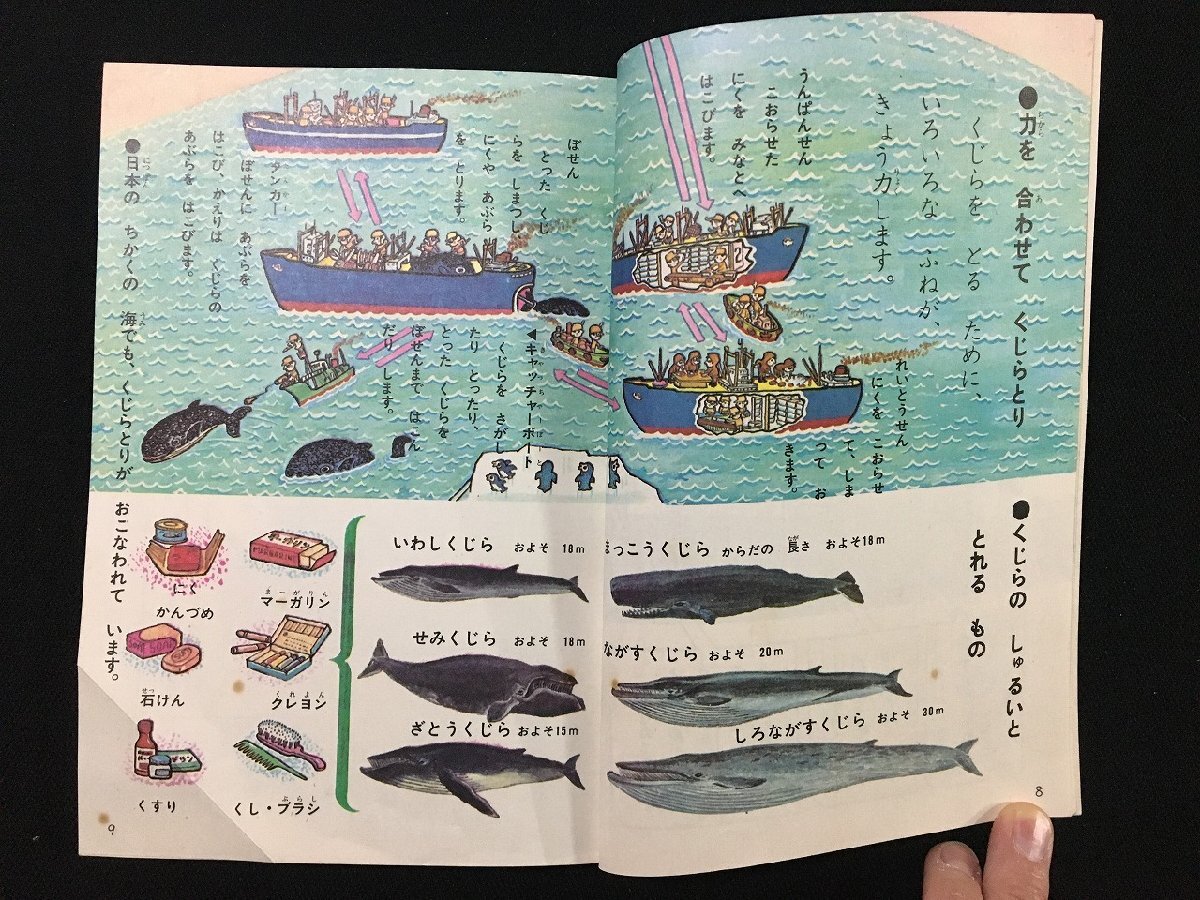 ●力を 合わせて くじらとり
くじらを とる ために、
いろいろな ふねが、
きょう力します。
うんぱんせん
こおらせた
にくを みなとへ
はこびます。
れいとうせん
にくを こおらせ
て、しま
って お
きます。
ぼせん
とった くじ
らを しまつし
にくや あぶら
を とります。
タンカー
ぼせんに あぶらを
はこび、かえりは くじらの
あぶらを はこびます。
◀キャッチャーボート
くじらを さがし
たり とったり、
とった くじらを
ぼせんまで はこん
だり します。
●日本の ちかくの 海でも、くじらとりが おこなわれて います。
●くじらの しゅるいと
とれる もの
まっこうくじら からだの 長さ およそ18m
ながすくじら およそ 20m
しろながすくじら およそ 30m
いわしくじら およそ 18m
せみくじら およそ 18m
ざとうくじら およそ15m
マーガリン
クレヨン
くし・ブラシ
にく
かんづめ
石けん
くすり
8
9